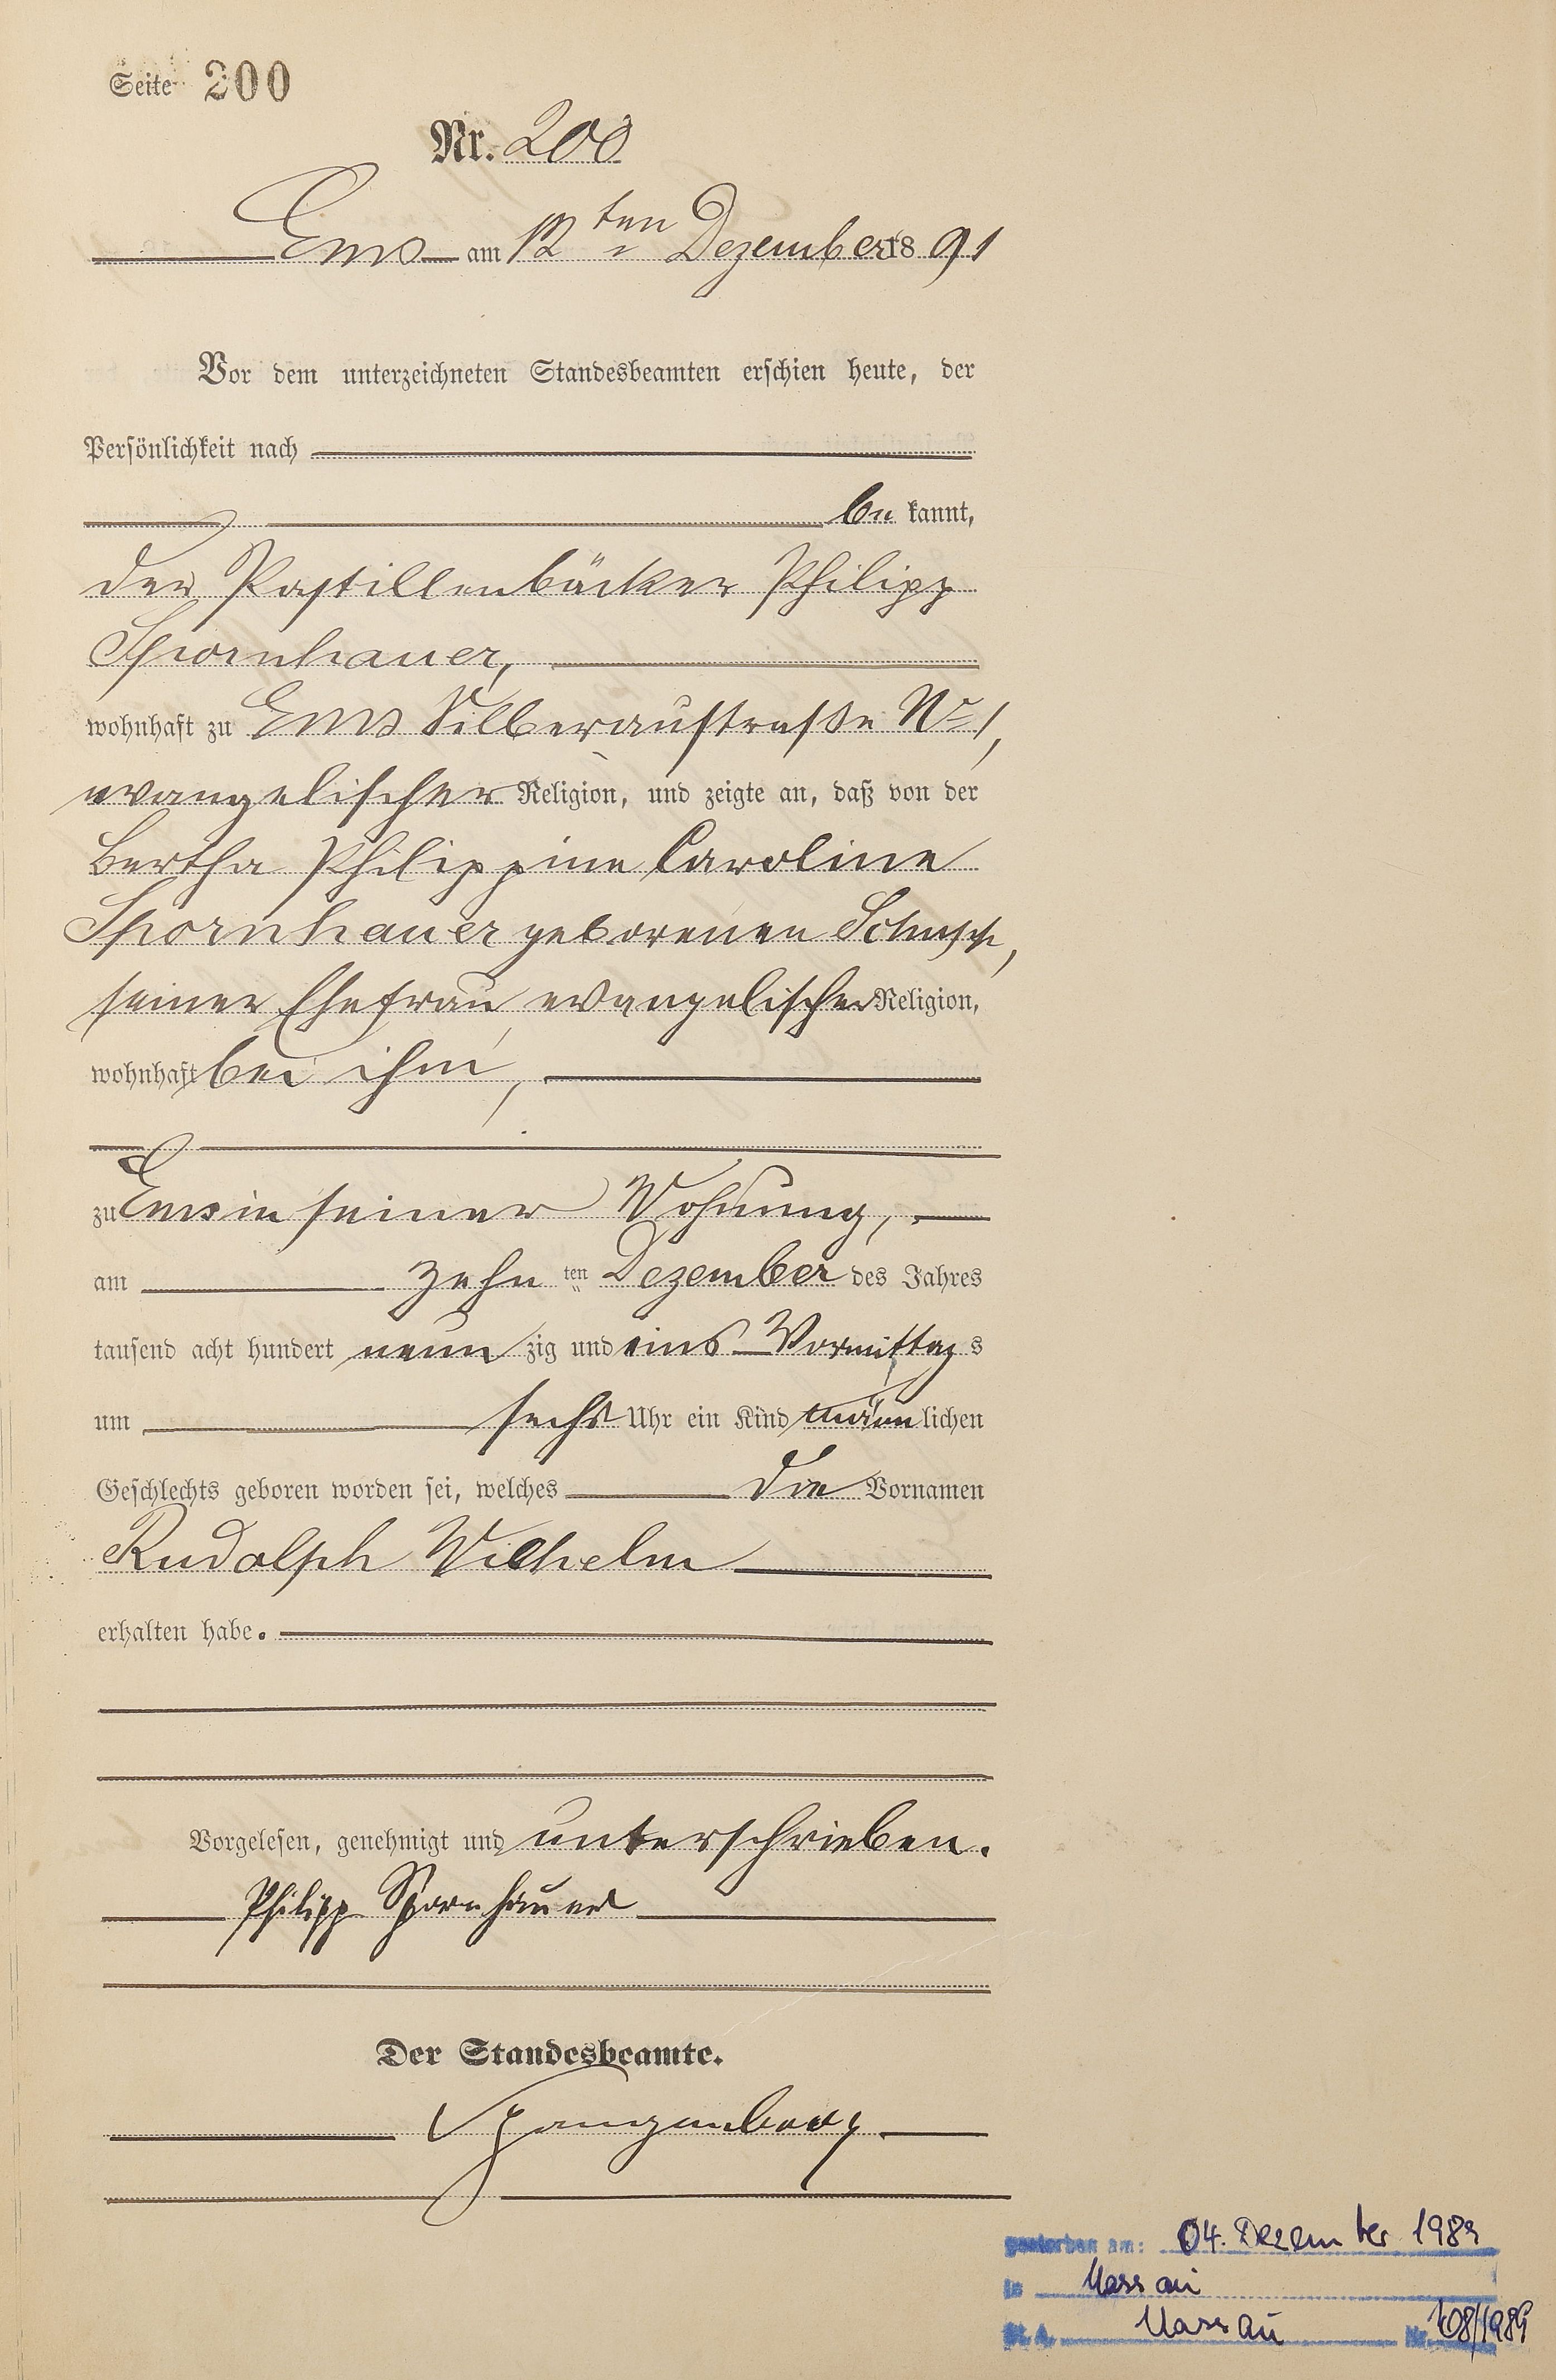 Seite 200
Nr. 200
Ems am 12ten Dezember 1891
Vor dem unterzeichneten Standesbeamten erschien heute, der
Persönlichkeit nach
be kannt,
der Pastillenbäcker Philipp
Spornhauer,
wohnhaft zu Ems Silberaustraße No 1,
evangelischer Religion, und zeigte an, daß von der
Bertha Philippine Caroline
Spornhauer geborenen
seiner Ehefrau, evangelischer Religion,
wohnhaft bei ihm,
zu Ems in seiner Wohnung,
am zehn ten Dezember des Jahres
tausend acht hundert neun zig und eins Vormittag s
um sechs Uhr ein Kind männ lichen
Geschlechts geboren worden sei, welches die Vornamen
Rudolph Wilhelm
erhalten habe.
Vorgelesen, genehmigt und unterschrieben.
Philipp Spornhauer
Der Standesbeamte.
Spangenberg
gestorben am: 04. Dezember 1989
in Nassau
St. A. Nassau Nr. 108/1989